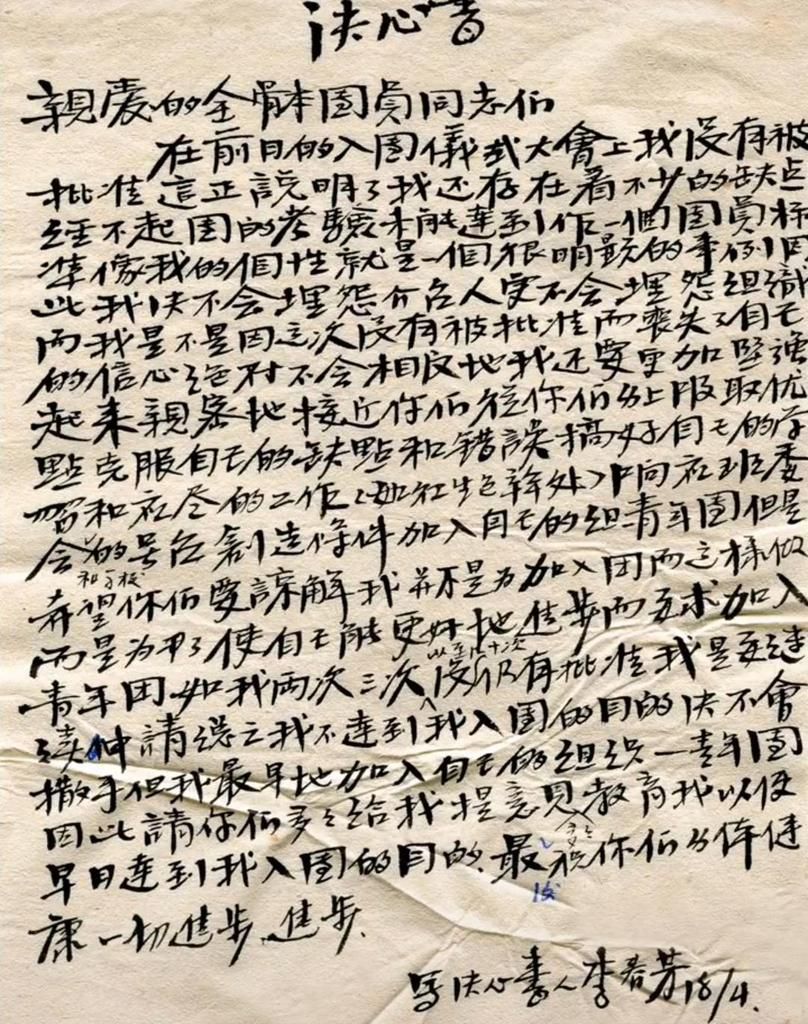 决心書
親爱的全體團員同志们
在前日的入團儀式大會上我没有被
批准這正説明了我还存在着不少的缺点
经不起团的考驗未能達到作一個團員标
準像我的個性就是一個很明顯的事例因
此我决不会埋怨介召人更不会埋怨组識
而我是不是因这次没有被批准而喪失了自己
的信心绝对不会相反地我还要更加坚强
起来親密地接近你们從你们身上吸取优
點克服自己的缺點和錯誤搞好自己的学
習和社尽的工作向社班委
会的号召創造條件加入自己的组青年團但是
和学校
希望你们要諒解我并不是为加入团而这样做
而是为了使自己能更好地進步而要求加入
以至几十次
青年团如我两次三次没仍有批准我是要继
续申請总之我不達到我入團的目的决不會
撒手但我最早地加入自己的组织一青年團
因此請你们多々给我提意見教育我以便
早日達到我入團的目的最後祝你们身体健
康一切進步進步
写决心書人李春芳18/4.